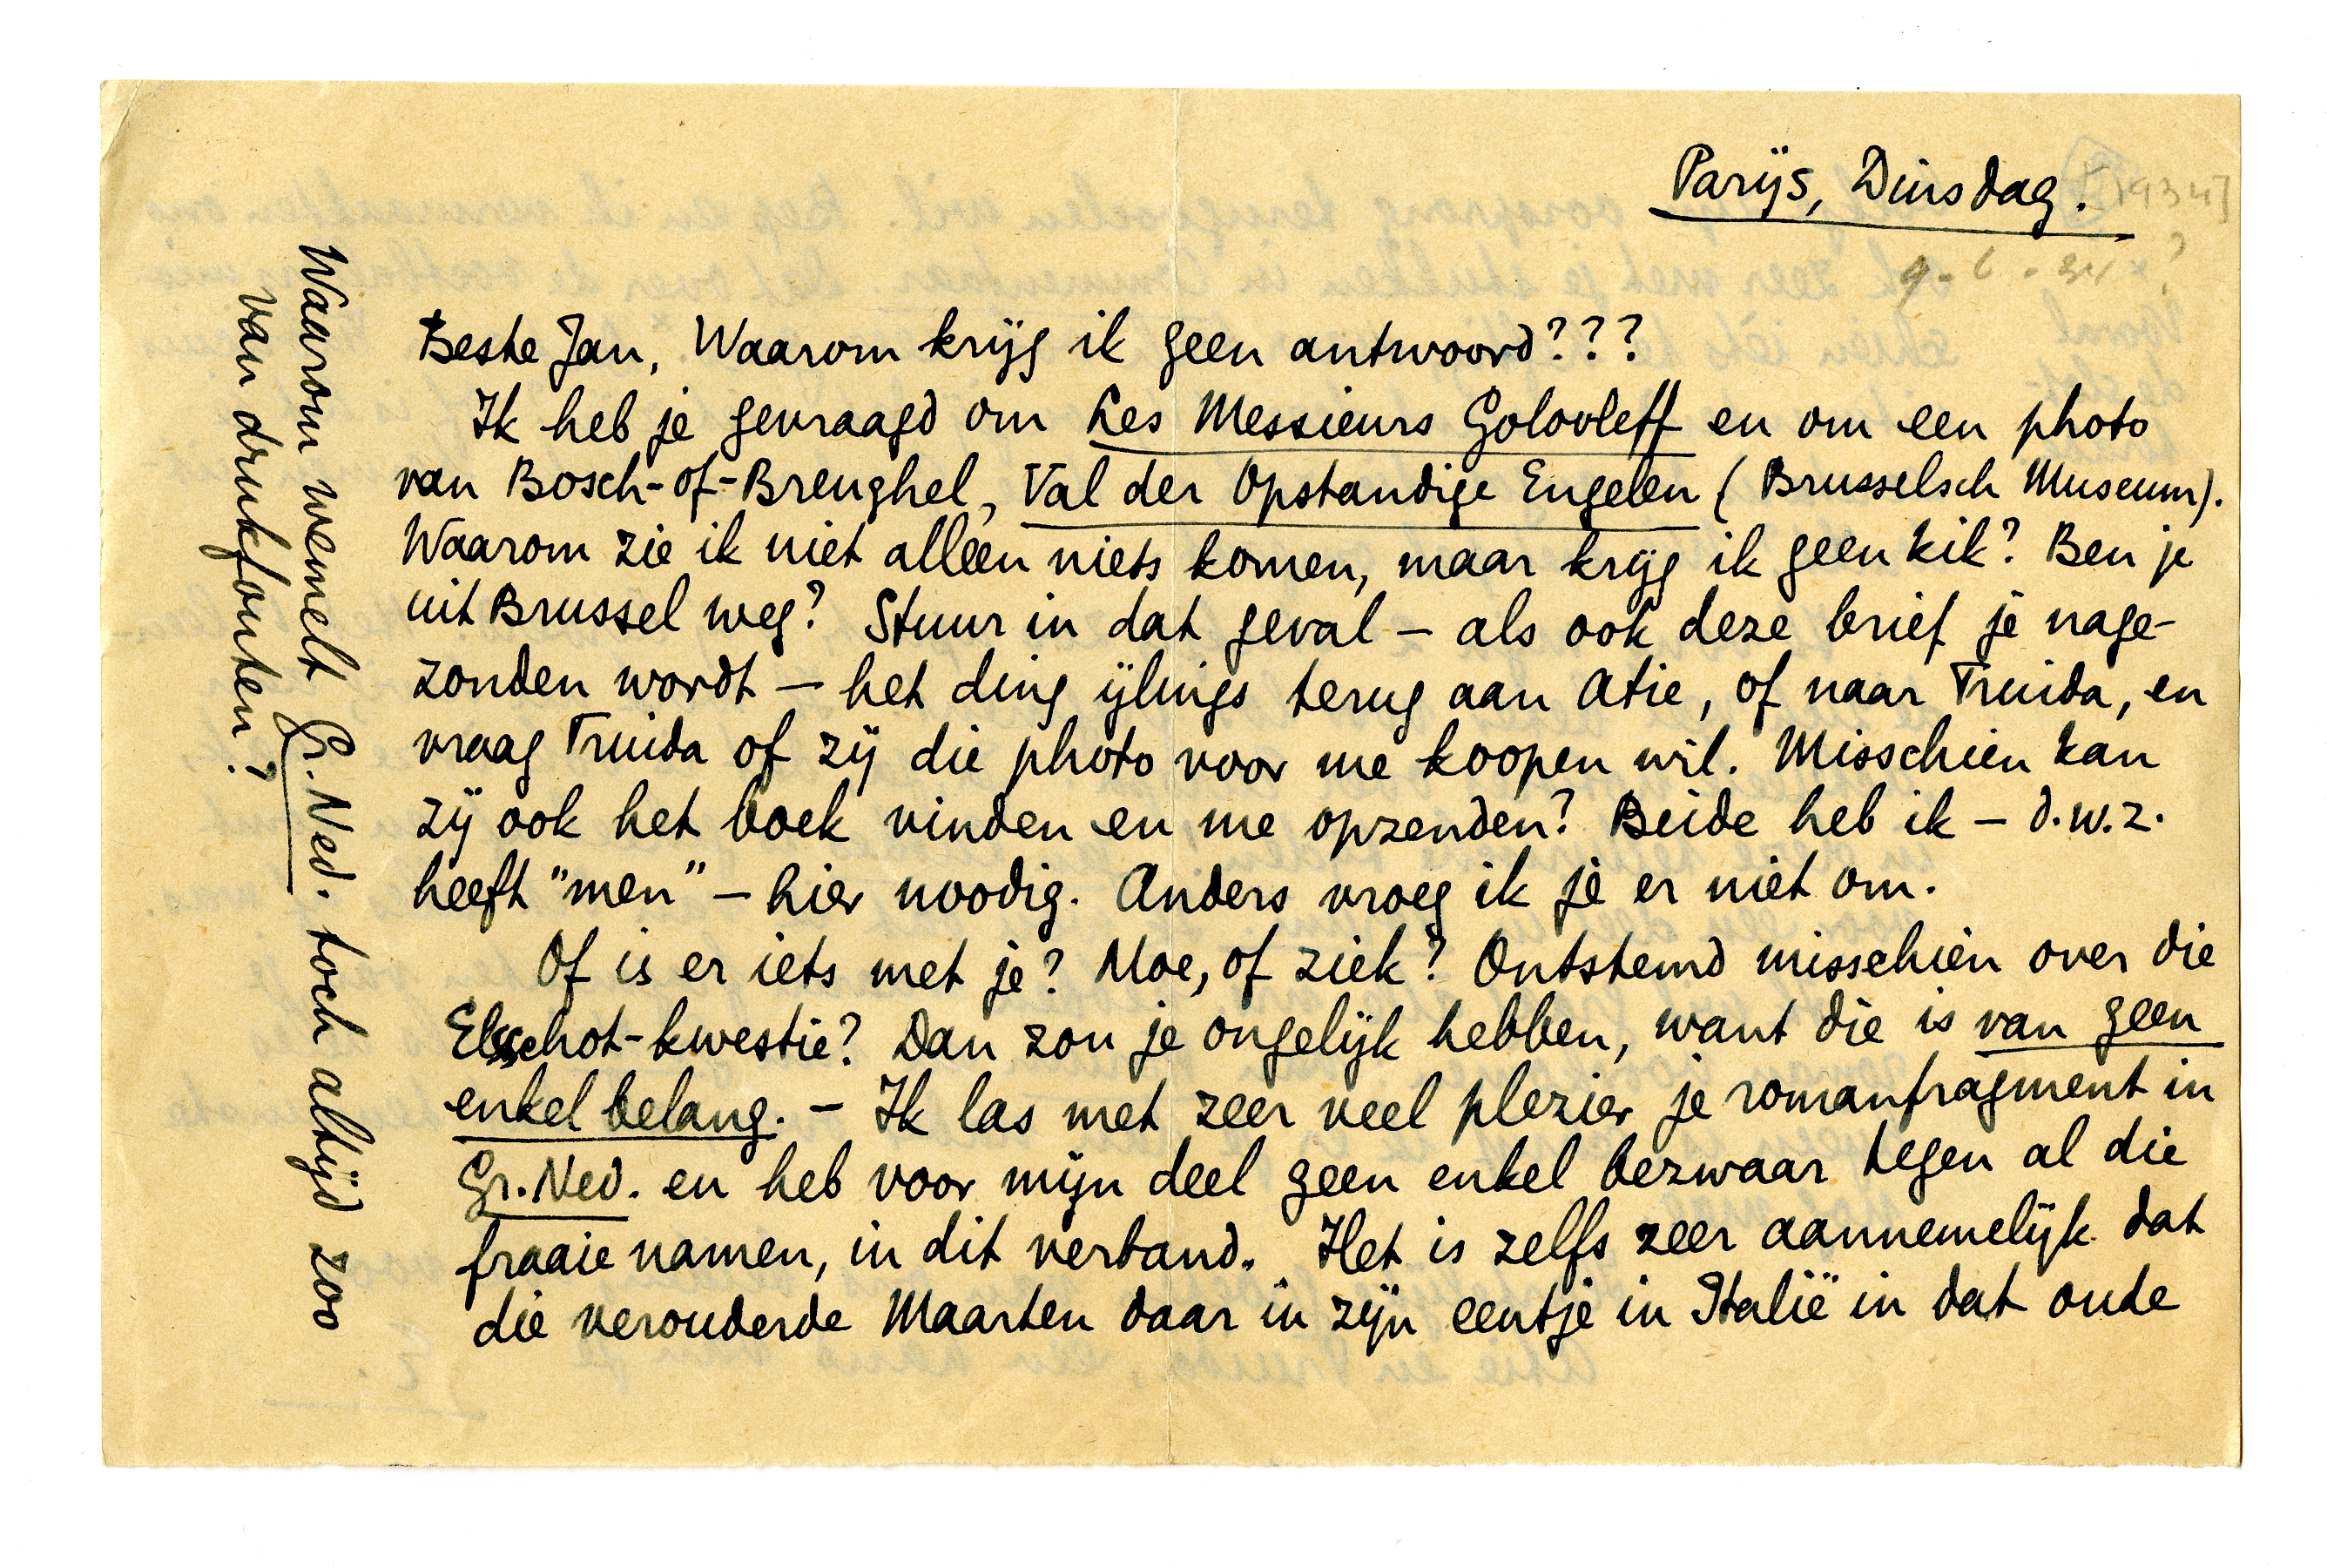 Parijs, Dinsdag.
[1934]
Beste Jan, Waarom krijg ik geen antwoord???
Ik heb je gevraagd om Les Messieurs Golovleff en om een photo
van Bosch-of-Breughel, Val der Opstandige Engelen (Brusselsch Museum).
Waarom zie ik niet alleen niets komen, maar krijg ik geen kik? Ben je
uit Brussel weg? Stuur in dat geval – als ook deze brief je nage-
zonden wordt – het ding ijlings terug aan Atie, of naar Truida, en
vraag Truida of zij die photo voor me koopen wil. Misschien kan
zij ook het boek vinden en me opzenden? Beide heb ik – d.w.z.
heeft "men" – hier noodig. Anders vroeg ik je er niet om.
Of is er iets met je? Moe, of ziek? Ontstemd misschien over die
Elsschot-kwestie? Dan zou je ongelijk hebben, want die is van geen
enkel belang. – Ik las met zeer veel plezier je romanfragment in
Gr. Ned. en heb voor mijn deel geen enkel bezwaar tegen al die
fraaie namen, in dit verband. Het is zelfs zeer aannemelijk dat
die verouderde Maarten daar in zijn eentje in Italië in dat oude
Waarom wemelt Gr. Ned. toch altijd zoo
van drukfouten?